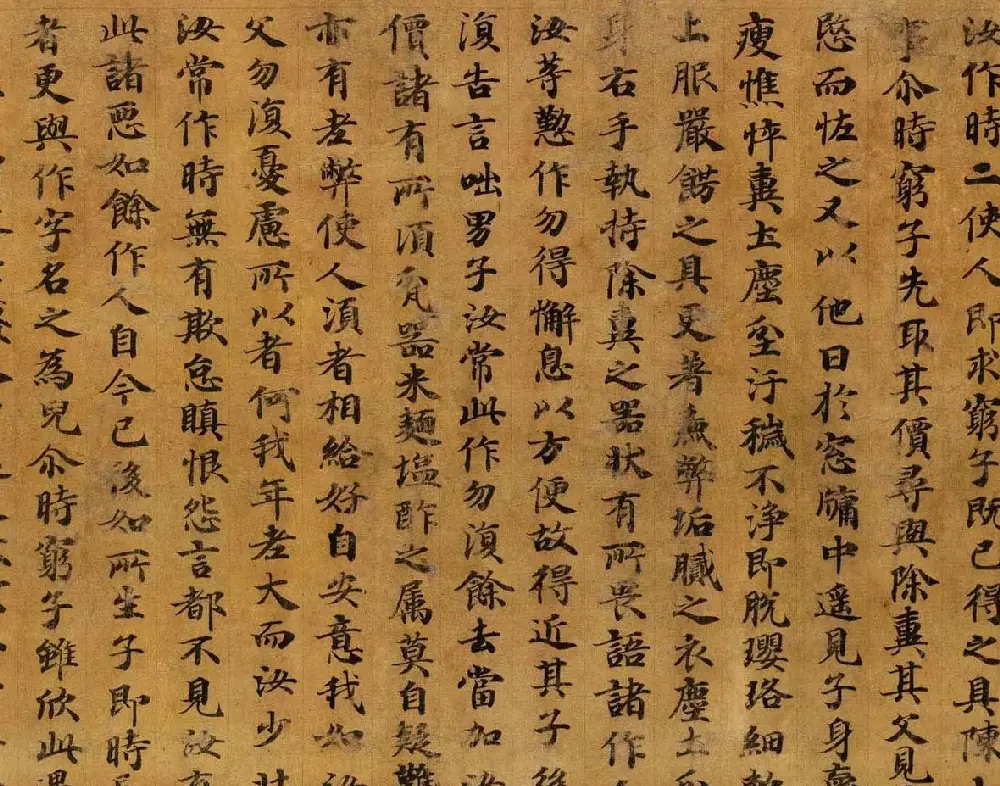 汝作時二使人即求窮子既已得之具陳
事尒時窮子先取其價尋與除糞其父見
愍而怪之又以他日於窓牖中遥見子身
瘦憔悴糞土塵坌汙穢不淨即脫瓔珞細軟
上服嚴餝之具更著麁弊垢膩之衣塵土坌
身右手執持除糞之器狀有所畏語諸作人
汝等懃作勿得懈息以方便故得近其子後
復告言咄男子汝常此作勿復餘去當加汝
價諸有所須瓫器米麵塩酢之属莫自疑難
亦有老弊使人須者相給好自安意我如汝
父勿復憂慮所以者何我年老大而汝少壯
汝常作時無有欺怠瞋恨怨言都不見汝有
此諸惡如餘作人自今已後如所生子即時
者更與作字名之為兒尒時窮子雖欣此遇